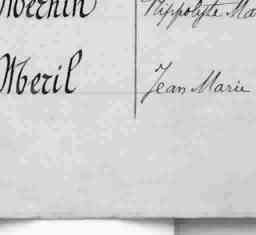 Mernin Hippolyte Ma
Meril Jean Marie